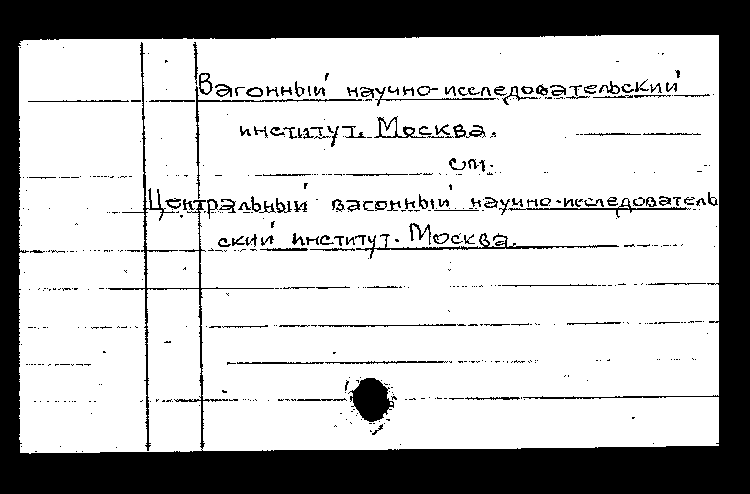 Вагонный научно-исследовательский
институт. Москва.
см.
Центральный вагонный научно-исследователь
ский институт. Москва.